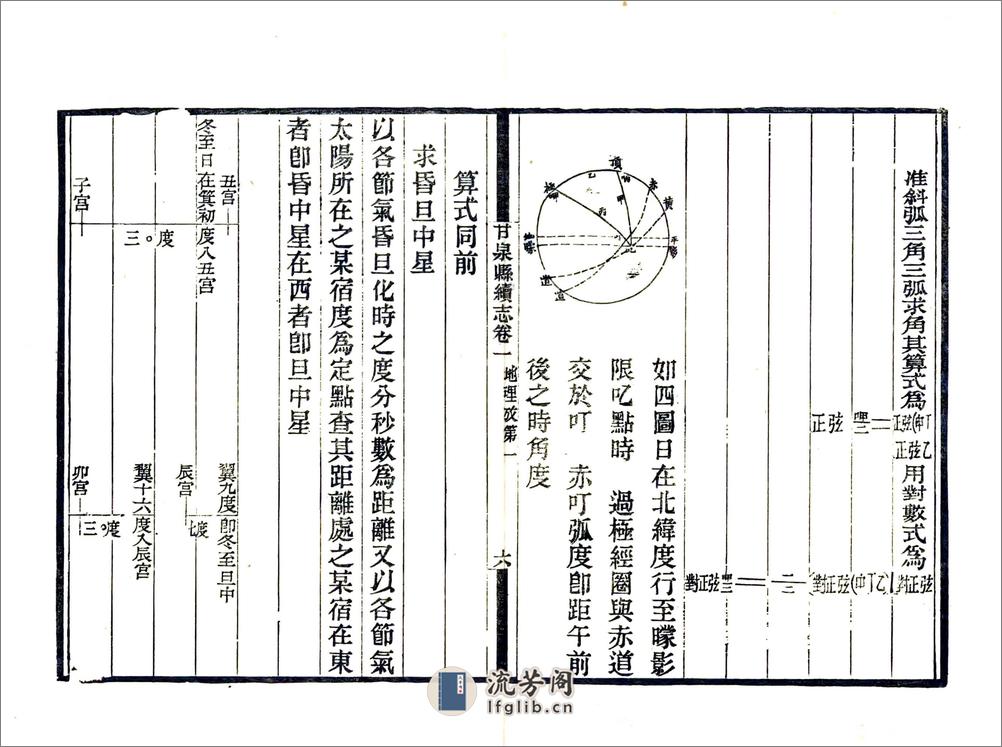 准斜弧三角三弧求角其算式爲
用對數式爲
如四圖日在北緯度行至矇影
限叱點時 過極經圈與赤道
交於叮 赤叮弧度卽距午前
後之時角度
甘泉縣續志卷一 地理攷第一 六
算式同前
求昏旦中星
以各節氣昏旦化時之度分秒數爲距離又以各節氣
太陽所在之某宿度爲定點查其距離處之某宿在東
者卽昏中星在西者卽旦中星
丑宮
翼九度卽冬至旦中
冬至日在箕初度入丑宮
辰宮
七度
三〇度
翼十六度入辰宮
子宮
卯宮
三〇度
流芳阁
lfglib.cn